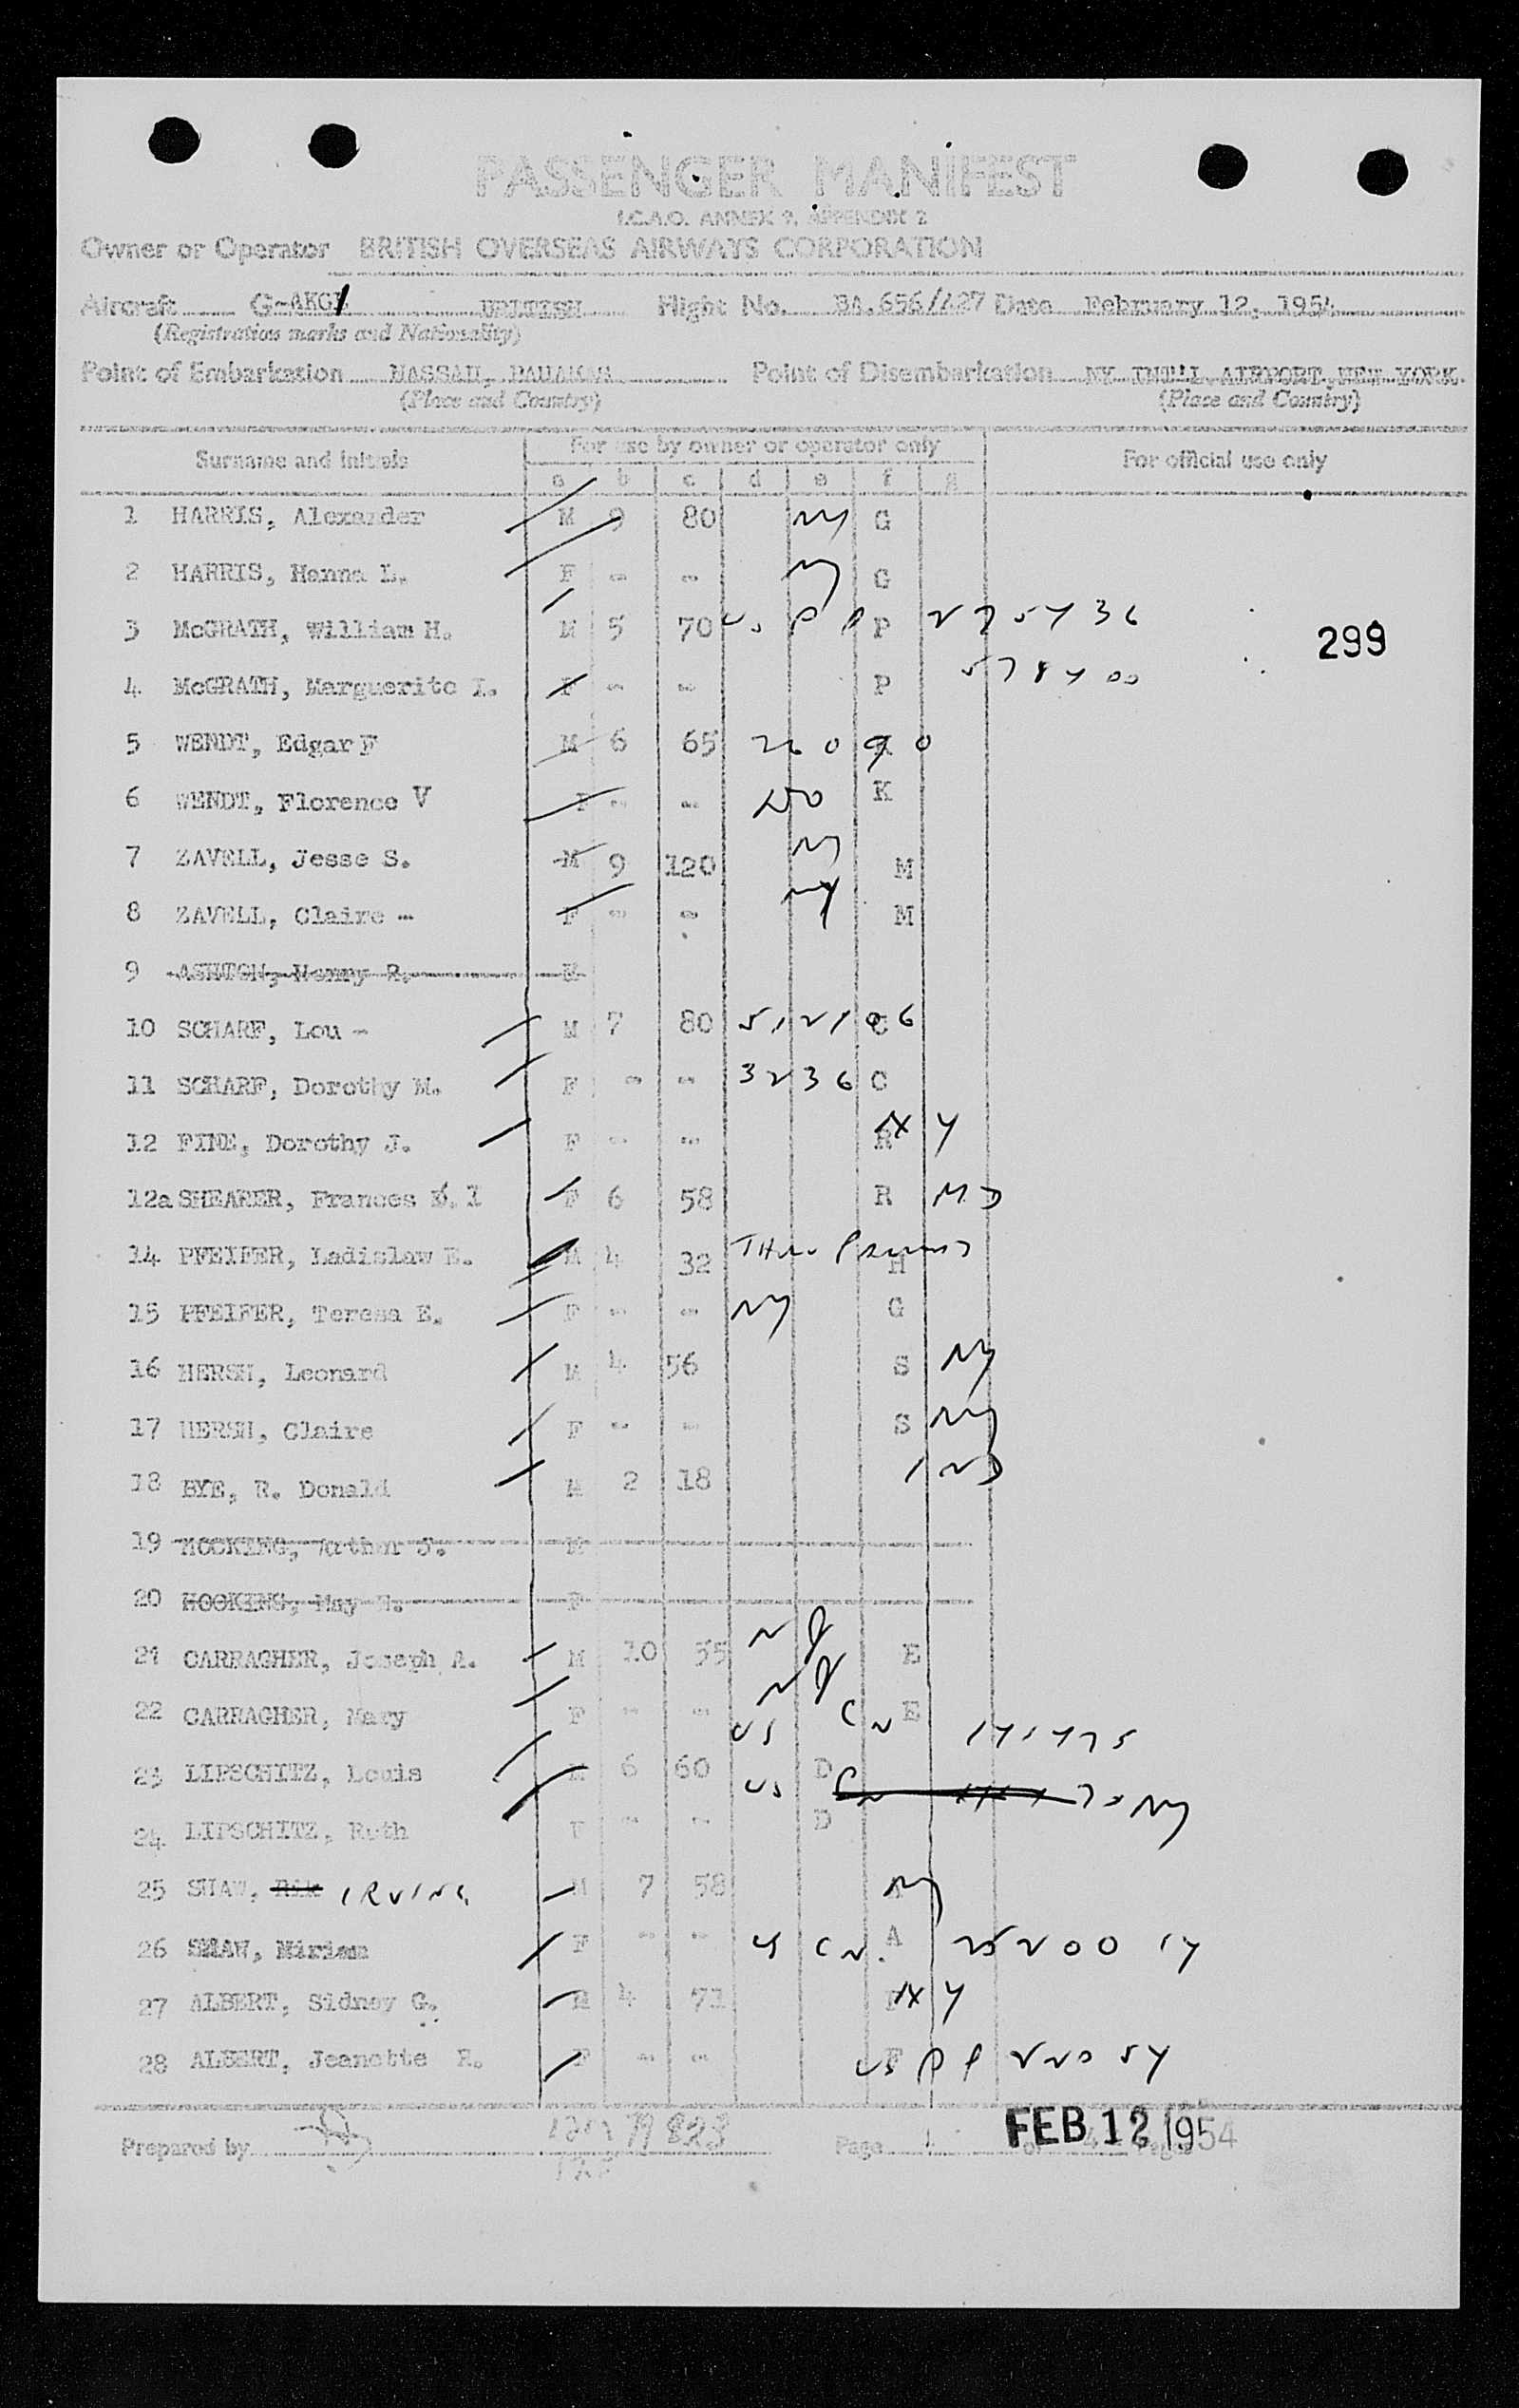 PASSENGER MANIFEST
I.C.A.O. ANNEX 9, APPENDIX 2
Owner or Operator BRITISH OVERSEAS AIRWAYS CORPORATION
Aircraft BRITISH Flight No. BA.656/427 Date February 12, 1954
(Registration marks and Nationality)
Point of Embarkation NASSAU, BAHAMAS Point of Disembarkation NY INT'L AIRPORT, NEW YORK
(Place and Country) (Place and Country)
For use by owner or operator only
Surname and initials For official use only
a b c d e f g
1 HARRIS, Alexander M 9 80 NY G
2 HARRIS, Hanna L. F - - NY G
3 McGRATH, William H. M 5 70 US PP P
299
4 McGRATH, Marguerite I. F - - P
5 WENDT, Edgar F M 6 65
6 WENDT, Florence V F - - K
7 ZAVELL, Jesse S. M 9 120 NY M
8 ZAVELL, Claire - F - - NY M
9 ASHTON, R. M
10 SCHARF, Lou - M 7 80
11 SCHARF, Dorothy M. F - - 3236 C
12 FINE, Dorothy J. F - - R NY
12a SHEARER, Frances I F 6 58 R MD
14 PFEIFER, Ladislaw E. M 4 32 H
15 PFEIFER, Teresa E. F - - NY G
16 HERSH, Leonard M 4 56 S NY
17 HERSH, Claire F - - S NY
18 BYE, R. Donald M 2 18 IND
19 HOOKING, Arthur J. M
20 HOOKING, May H. F
21 CARRAGHER, Joseph A. M 10 55 NJ E
22 CARRAGHER, Mary F - - NJ E
US CN
23 LIPSCHITZ, Louis M 6 60 D
US NY
24 LIPSCHITZ, Ruth F - - D
25 SHAW, IRVING M 7 58 NY
26 SHAW, Miriam F - - US CN. A
27 ALBERT, Sidney G. M 4 71 NY
28 ALBERT, Jeanette R. F - - US PP F
Prepared by Page 1 of 4 Pages
FEB 12 1954